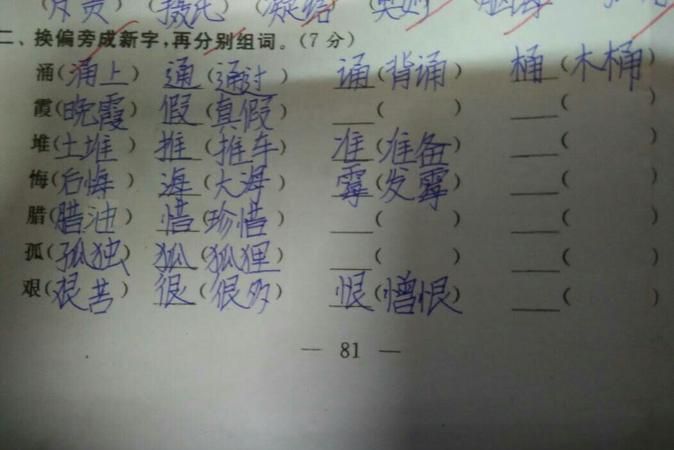 二、换偏旁成新字,再分别组词。(7分)
涌(涌上) 通(通过) 诵(背诵) 桶(木桶)
霞(晚霞) 假(真假) ___( ) ___(
堆(土堆) 推(推车) 准(准备) ___(
悔(后悔) 海(大海) 霉(发霉) ___(
腊(腊油) 惜(珍惜) ___( ) ___(
孤(孤独) 狐(狐狸) ___( ) ___(
艰(艰苦) 很(很多) 恨(憎恨) ___(
— 81 —